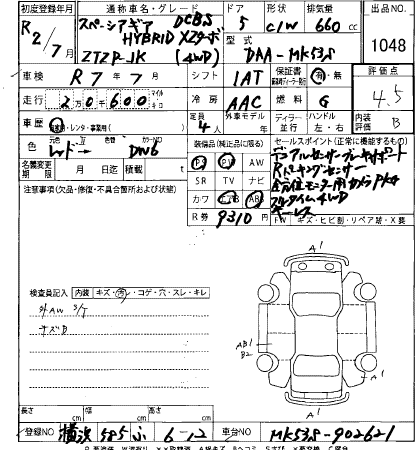 初度登録年月 通称車名・グレード ドア 形状 排気量 出品NO
R2/7月 スペーシアギア DCBS 5 C/W 660cc 1048
HYBRID XZターボ
ZTZP-JK (4WD) 型式 DAA-MK53S
車検 R7年7月 シフト IAT 保証書 有・無 評価点 4.5
走行 20600 マイルキロ 冷房 AAC 燃料 G
車歴 自家用・レンタ・事業用( ) 定員 4人 外車モデル年 ディーラー 並行 ハンドル 左・右 内装 B
色 レッド→ カラーNO DN6 装備品(純正品に限る) セールスポイント(正常に機能するもの)
名義変更期限 月 日迄 積載 PS PW AW デュアルセンサーブレーキサポート
注意事項(欠品・修復・不具合箇所および状態) SR TV ナビ Rパーキングセンサー
カワ エアB ABS 全方位モニター用カメラPKG
フルタイム4WD
R券 9310 キーレス
FW キズ・ヒビ割・リペア跡・X要
検査員記入 内装 キズ・汚レ・コゲ・穴・スレ・キレ A1
外AW S/T
キズB
AB1
B2
A1
A1
長さ cm 幅 cm 高さ cm
登録NO 横浜 585 ふ 6-12 車台NO MK53S-902621